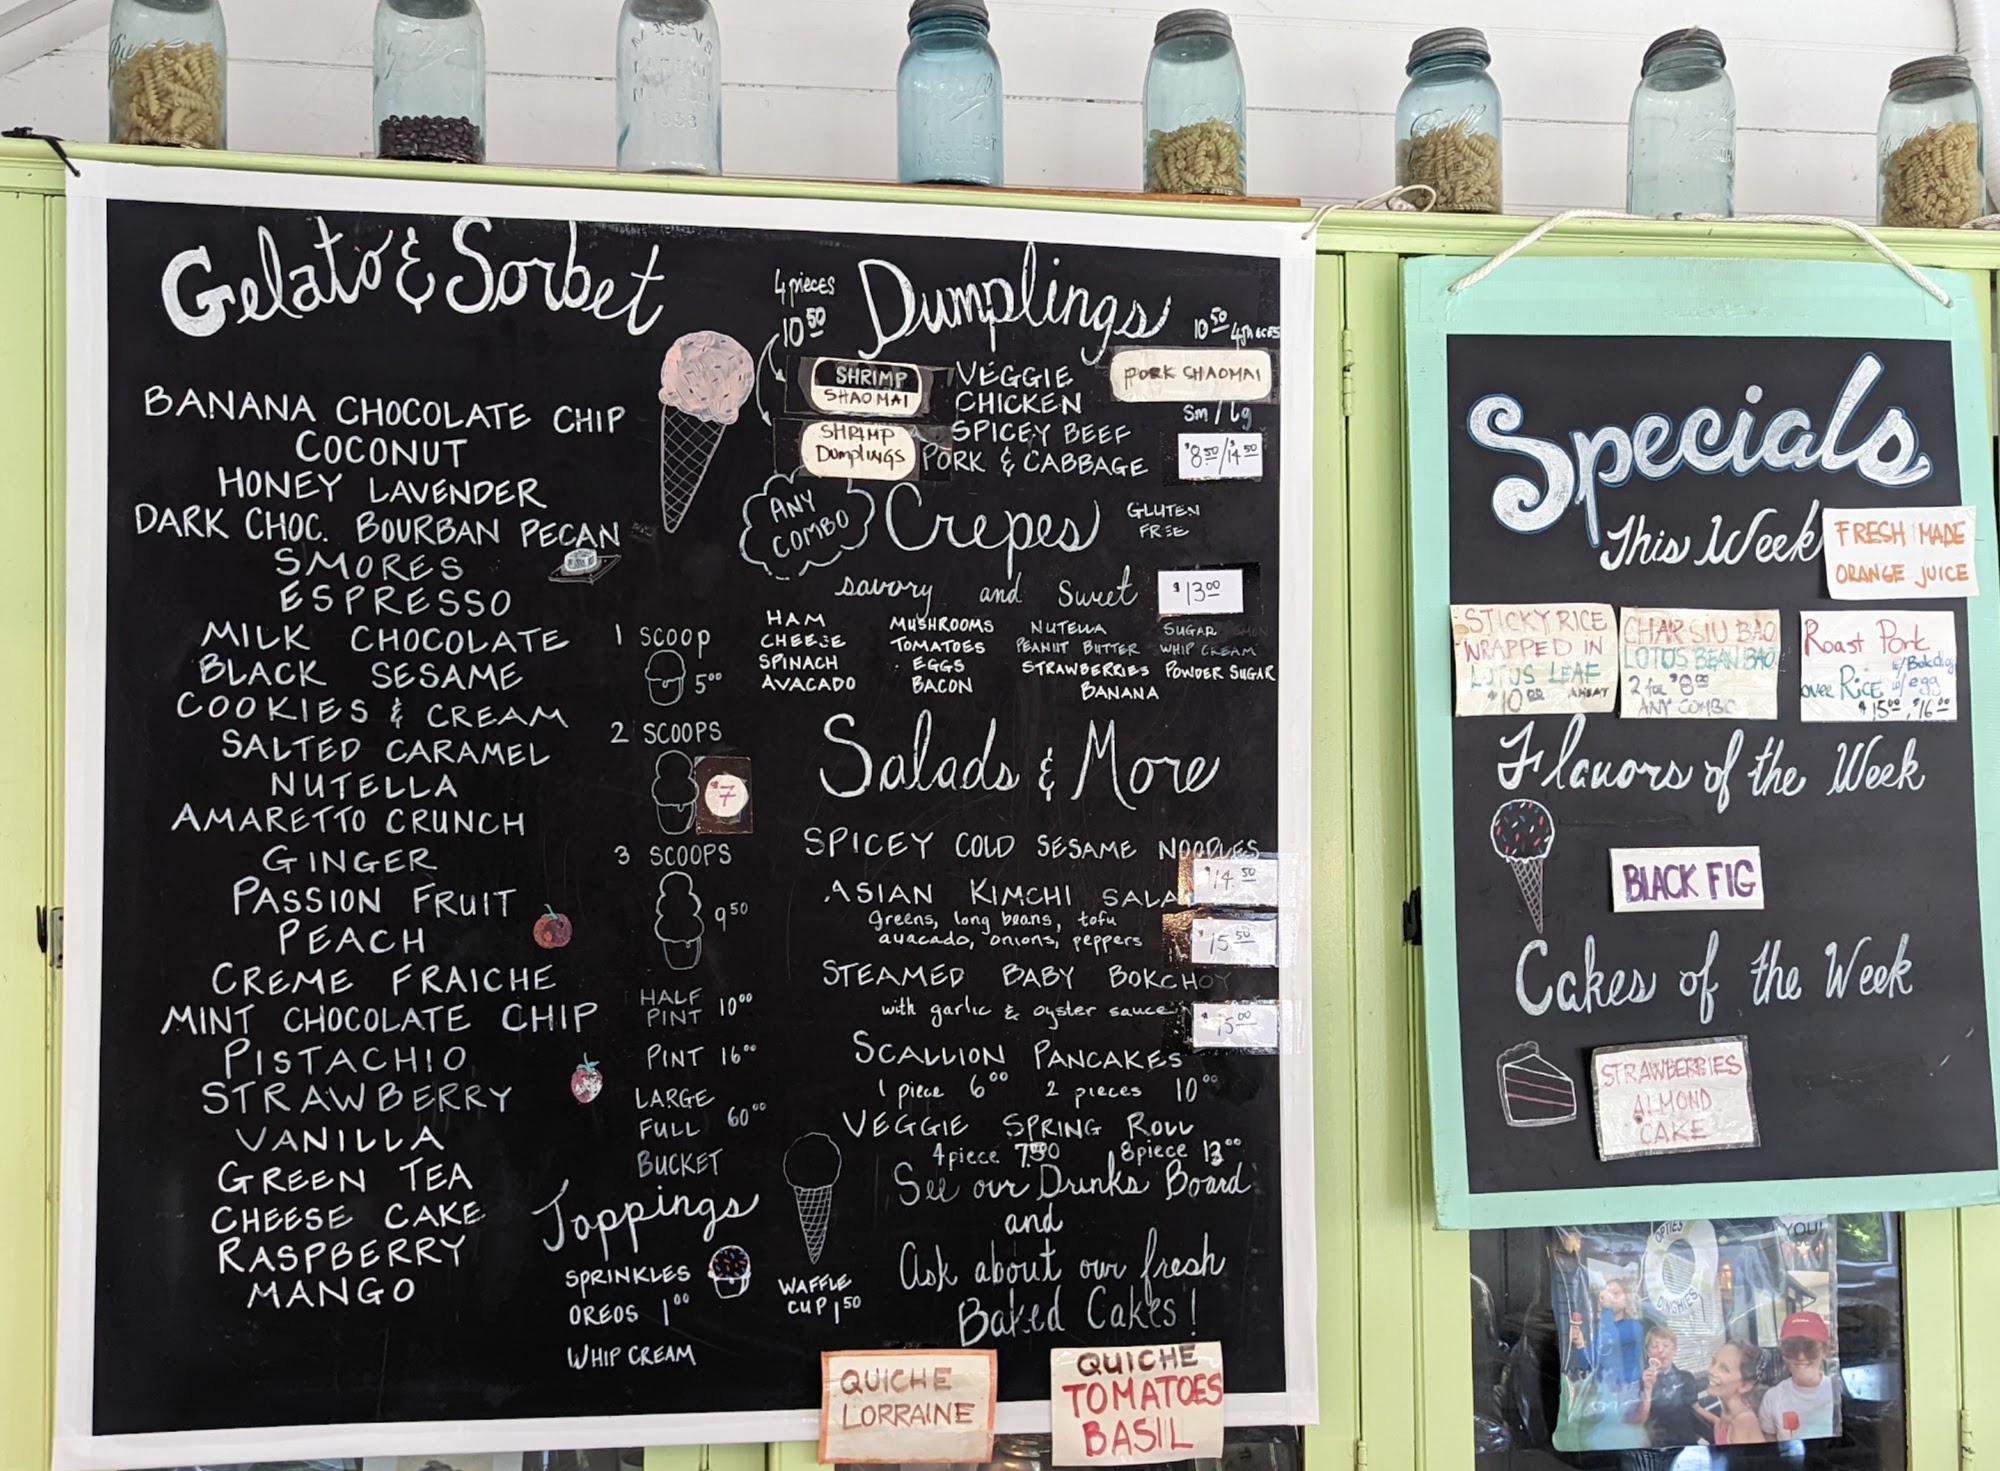 Gelato & Sorbet
BANANA CHOCOLATE CHIP
COCONUT
HONEY LAVENDER
DARK CHOC. BOURBAN PECAN
SMORES
ESPRESSO
MILK CHOCOLATE
BLACK SESAME
COOKIES & CREAM
SALTED CARAMEL
NUTELLA
AMARETTO CRUNCH
GINGER
PASSION FRUIT
PEACH
CREME FRAICHE
MINT CHOCOLATE CHIP
PISTACHIO
STRAWBERRY
VANILLA
GREEN TEA
CHEESE CAKE
RASPBERRY
MANGO
1 SCOOP
5.00
2 SCOOPS
$7
3 SCOOPS
9.50
HALF
PINT 10.00
PINT 16.00
LARGE
FULL 60.00
BUCKET
Toppings
SPRINKLES
OREOS 1.00
WHIP CREAM
WAFFLE
CUP 1.50
4 pieces
10.50
Dumplings
10.50
SHRIMP
SHAOMAI
SHRIMP
DumpLINGS
VEGGIE
CHICKEN
SPICEY BEEF
PORK & CABBAGE
PORK SHAOMAI
Sm / lg
$8.50/$14.50
ANY
COMBO
Crepes
GLUTEN
FREE
savory and Sweet
$13.00
HAM
CHEESE
SPINACH
AVACADO
MUSHROOMS
TOMATOES
EGGS
BACON
NUTELLA
PEANUT BUTTER
STRAWBERRIES
BANANA
SUGAR
WHIP CREAM
POWDER SUGAR
Salads & More
SPICEY COLD SESAME NOODLES
$14.50
ASIAN KIMCHI SALA
greens, long beans, tofu
avacado, onions, peppers
$15.50
STEAMED BABY BOKCHOY
with garlic & oyster sauce
$15.00
SCALLION PANCAKES
1 piece 6.00 2 pieces 10.00
VEGGIE SPRING ROLL
4 piece 7.50 8 piece 13.00
See our Drinks Board
and
Ask about our fresh
Baked Cakes!
QUICHE
LORRAINE
QUICHE
TOMATOES
BASIL
Specials
This Week
FRESH MADE
ORANGE JUICE
STICKY RICE
WRAPPED IN
LOTUS LEAF
$10.00
CHAR SIU BAO
LOTUS BEAN BAO
2 for $8.00
ANY COMBO
Roast Pork
w/ Bokchoy
over Rice w/ egg
$15.00, $16.00
Flavors of the Week
BLACK FIG
Cakes of the Week
STRAWBERRIES
ALMOND
CAKE
OPTIES
DINGHIES
YOU!